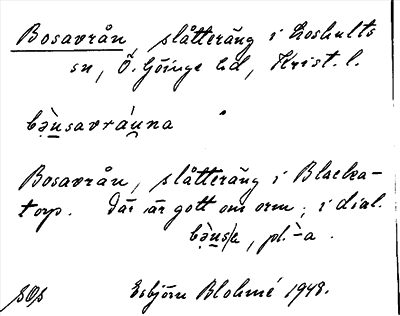 Bosavrån, slåtteräng i Loshults
sn, Ö. Göinge hd, Krist. l.
bə̀u̲savrȧu̲na
Bosavrån, slåtteräng i Blacka-
torp. Där är gott om orm; i dial.
bə̀u̲s/e, pl. -̀a.
Esbjörn Blohmé 1948.